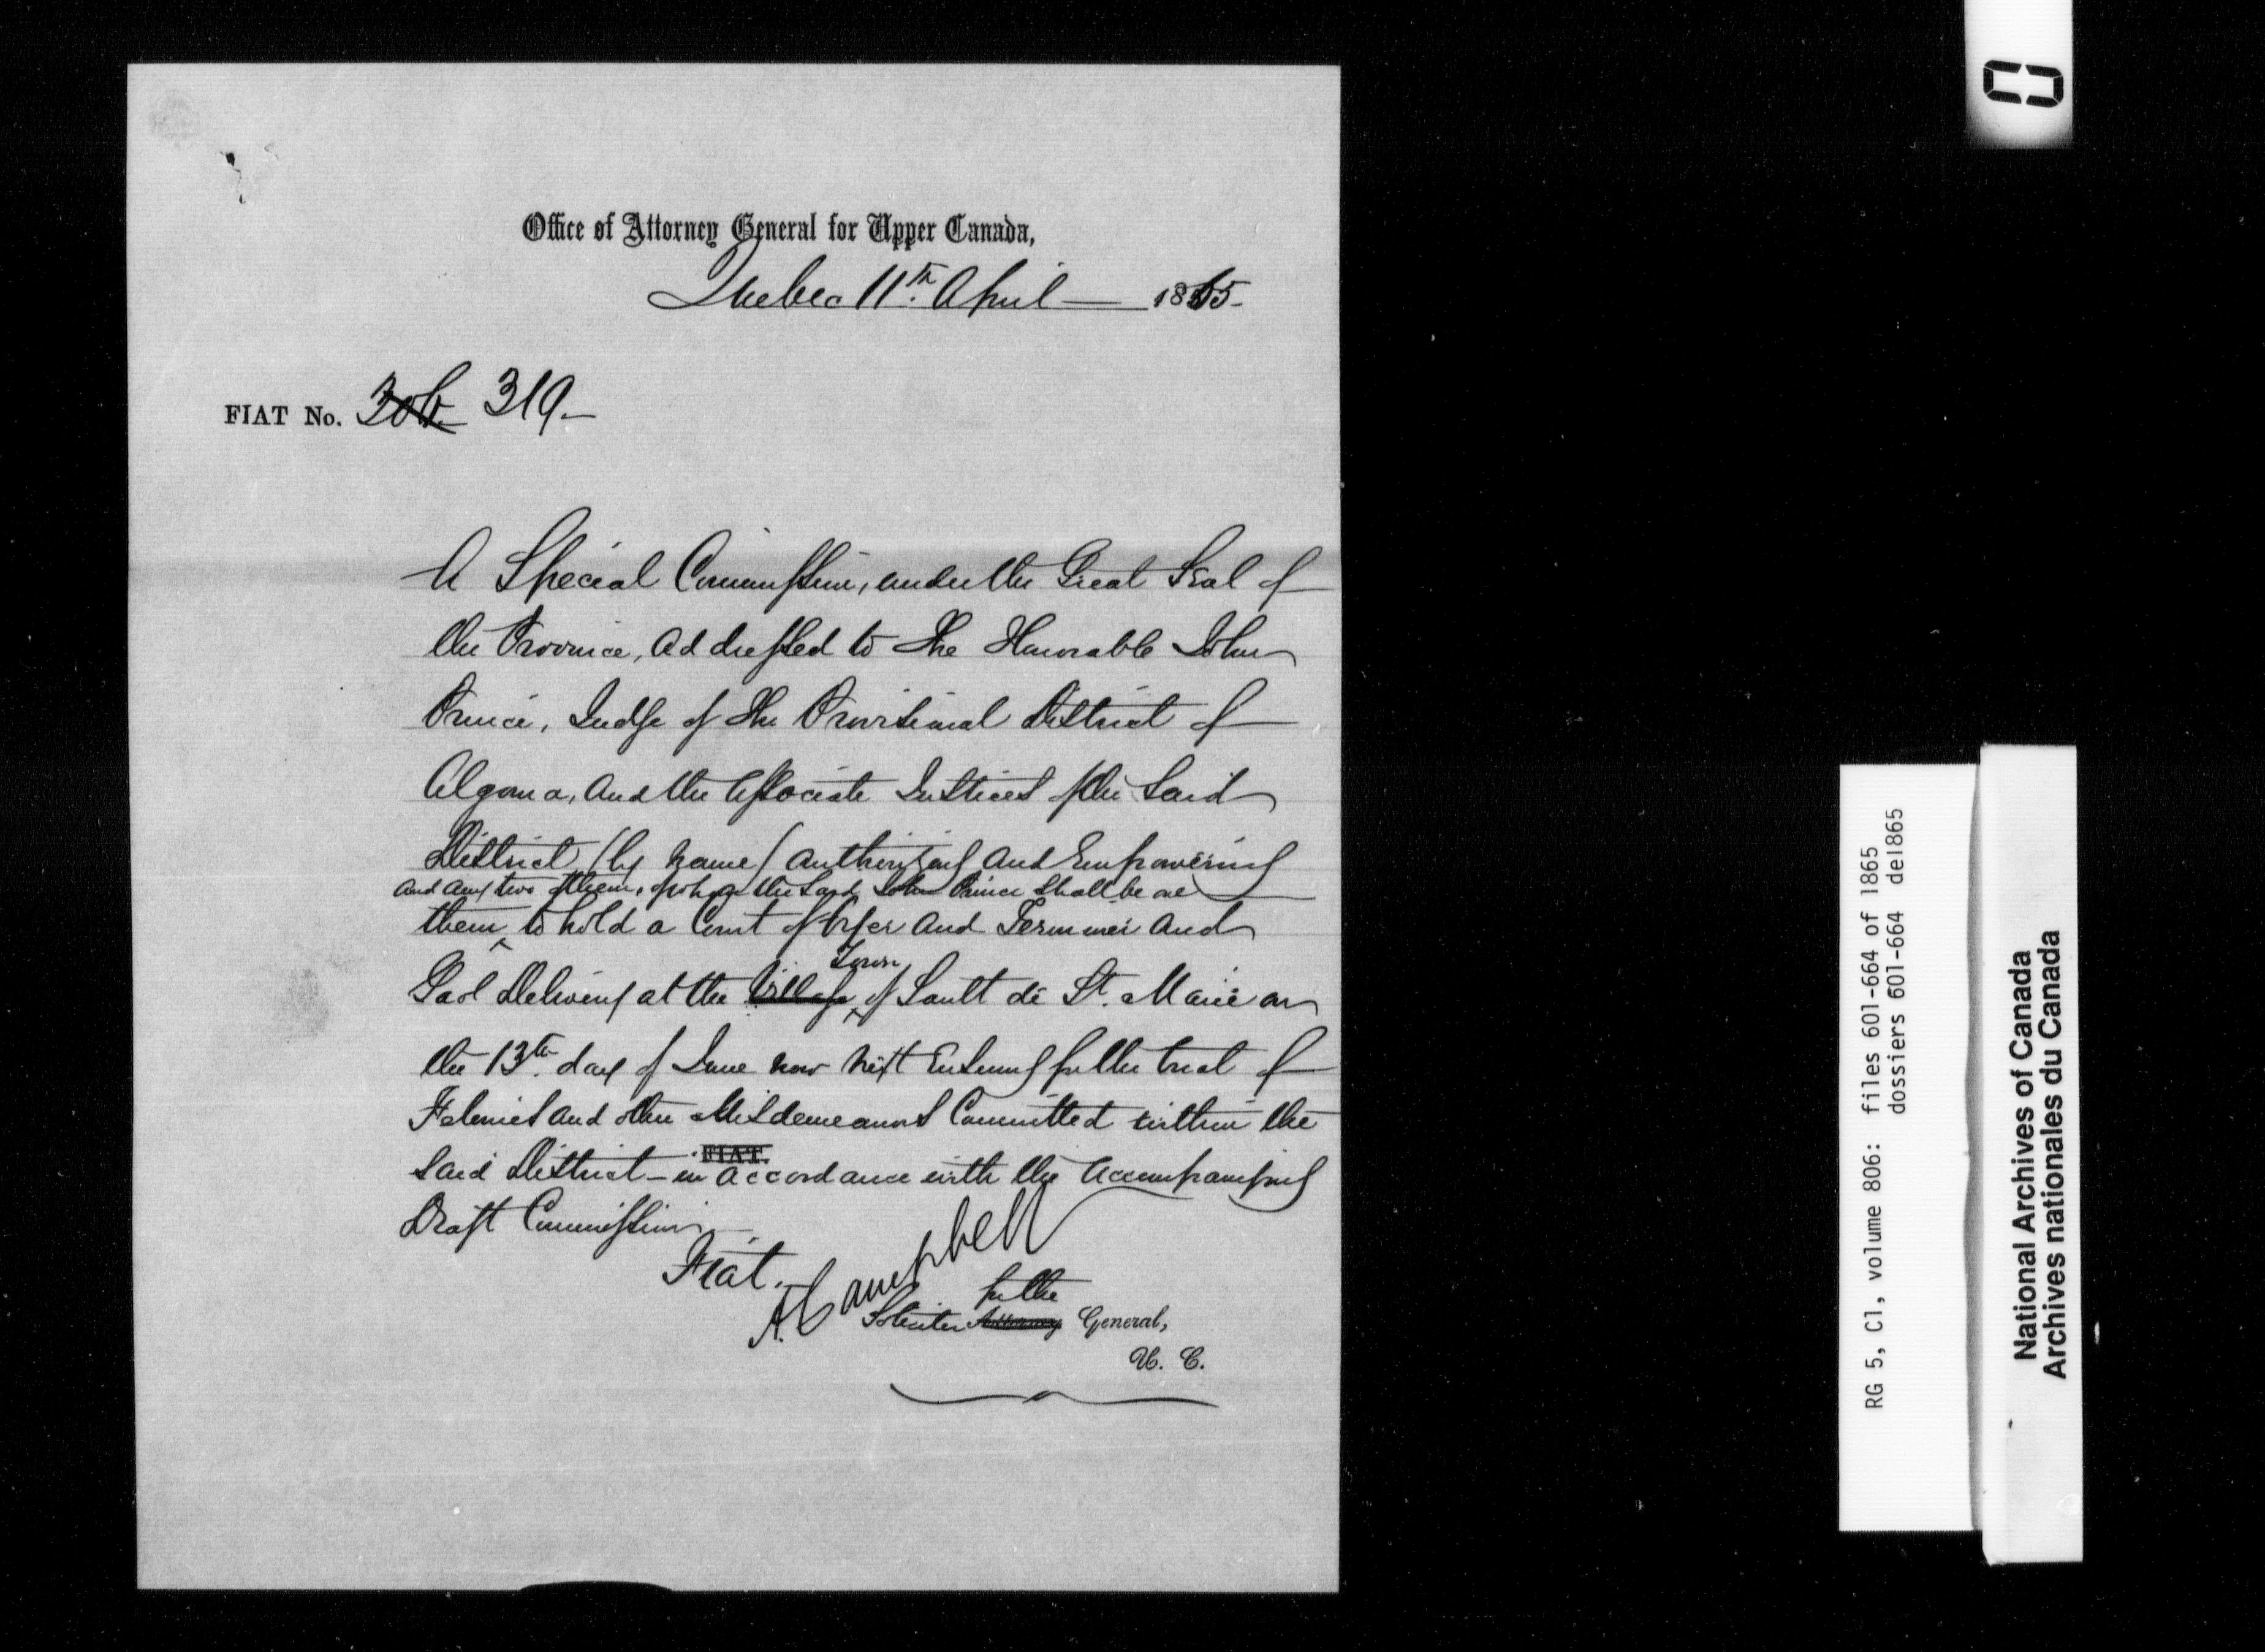 Office of Attorney General for Upper Canada,
Quebec 11th. April — 1865-
FIAT No. 319.-
A Special Commission, under the Great Seal of
the Province, addressed to The Honorable John
Prince, Judge of The Provisional District of
Algoma, and the Associate Justices of the Said
District (by name) authorizing and Empowering
and any two of them, of whom the Said John Prince Shall be one
them to hold a Court of Oyer and Terminer and
Town
Gaol Delivery at the Village of Sault de St. Marie on
the 13th. day of June now next Ensuing for the trial of
Felonies and other Misdemeanors Committed within the
FIAT.
Said District - in accordance with the accompanying
Draft Commission -
Fiat.
A. Campbell
for the
Solicitor Attorney General,
U. C.
RG 5, C1, volume 806: files 601-664 of 1865
dossiers 601-664 de1865
National Archives of Canada
Archives nationales du Canada